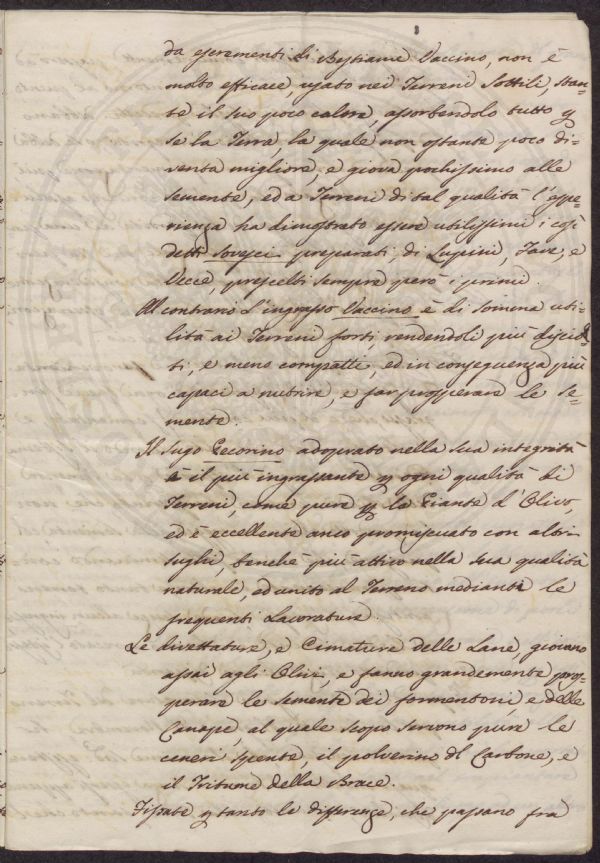 da escrementi di Bestiame Vaccino, non è
molto efficace, usato nei Terreni Sottili, stan-
te il suo poco calore, assorbendolo tutto p
se la Terra, la quale non ostante poco di-
venta migliore, e giova pochissimo alle
semente, ed a Terreni di tal qualità l'espe-
rienza ha dimostrato essere utilissimi i così
detti sovesci preparati di Lupini, Fave, e
Vecce, prescelti sempre però i primi.
Al contrario l'ingrasso Vaccino è di somma uti-
lità ai Terreni forti rendendoli più disciol-
ti, e meno compatti, ed in conseguenza più
capaci a nutrire, e far prosperare le se-
mente.
Il Sugo Pecorino adoprato nella sua integrità
è il più ingrassante p ogni qualità di
Terreni, come pure p le Piante d'Olivo,
ed è eccellente anco promiscuato con altri
sughi, benchè più attivo nella sua qualità
naturale, ed unito al Terreno mediante le
frequenti Lavorature.
Le divettature, e Cimature delle Lane, giovano
assai agli Olivi, e fanno grandemente pros-
perare le semente dei formentoni, e delle
Canape, al quale scopo servono pure le
ceneri spente, il polverino del Carbone, e
il Tritume della Brace.
Fissate p tanto le differenze, che passano frà